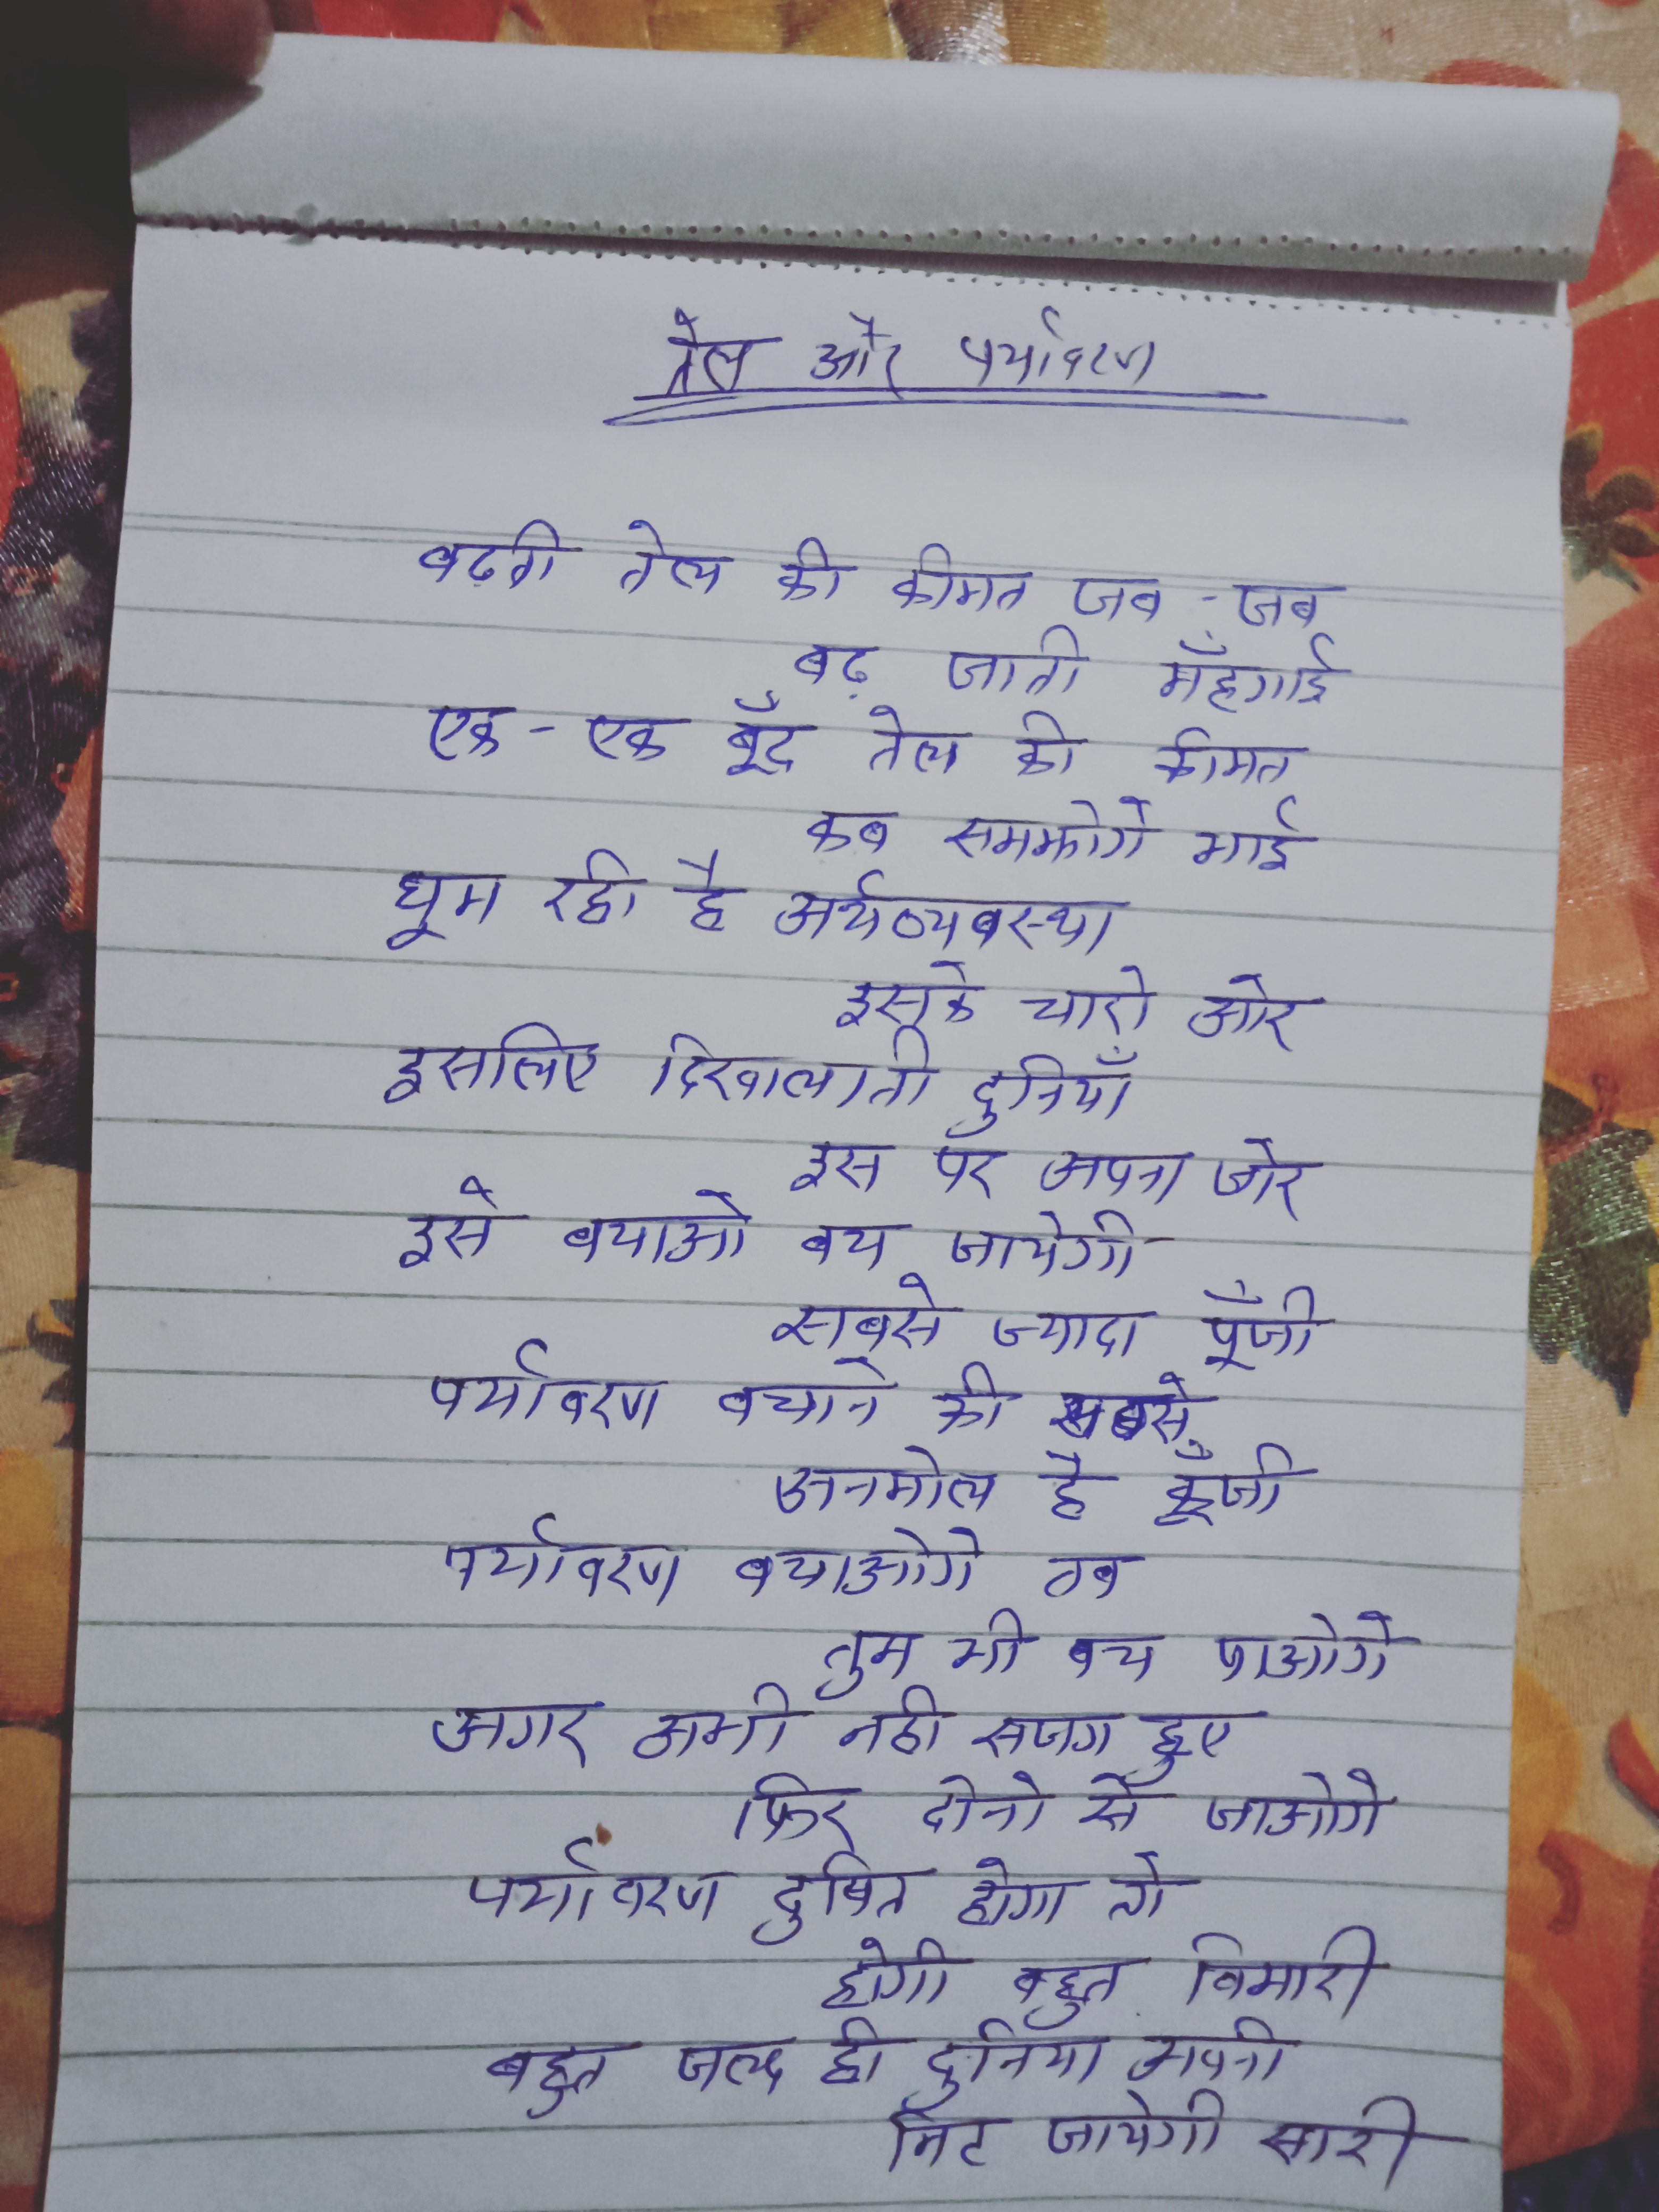 तेल और पर्यावरण
बढ़ती तेल की कीमत जब - जब
बढ़ जाती मँहगाई
एक - एक बूँद तेल की कीमत
कब समझोगे भाई
घूम रही है अर्थव्यवस्था
इसके चारो ओर
इसलिए दिखलाती दुनियाँ
इस पर अपना जोर
इसे बचाओ बच जायेगी
सबसे ज्यादा पूँजी
पर्यावरण बचाने की सबसे
अनमोल है कूँजी
पर्यावरण बचाओगे तब
तुम भी बच पाओगे
अगर अभी नही सजग हुए
फिर दोनो से जाओगे
पर्यावरण दुषित होगा तो
होगी बहुत बिमारी
बहुत जल्द ही दुनिया अपनी
मिट जायेगी सारी